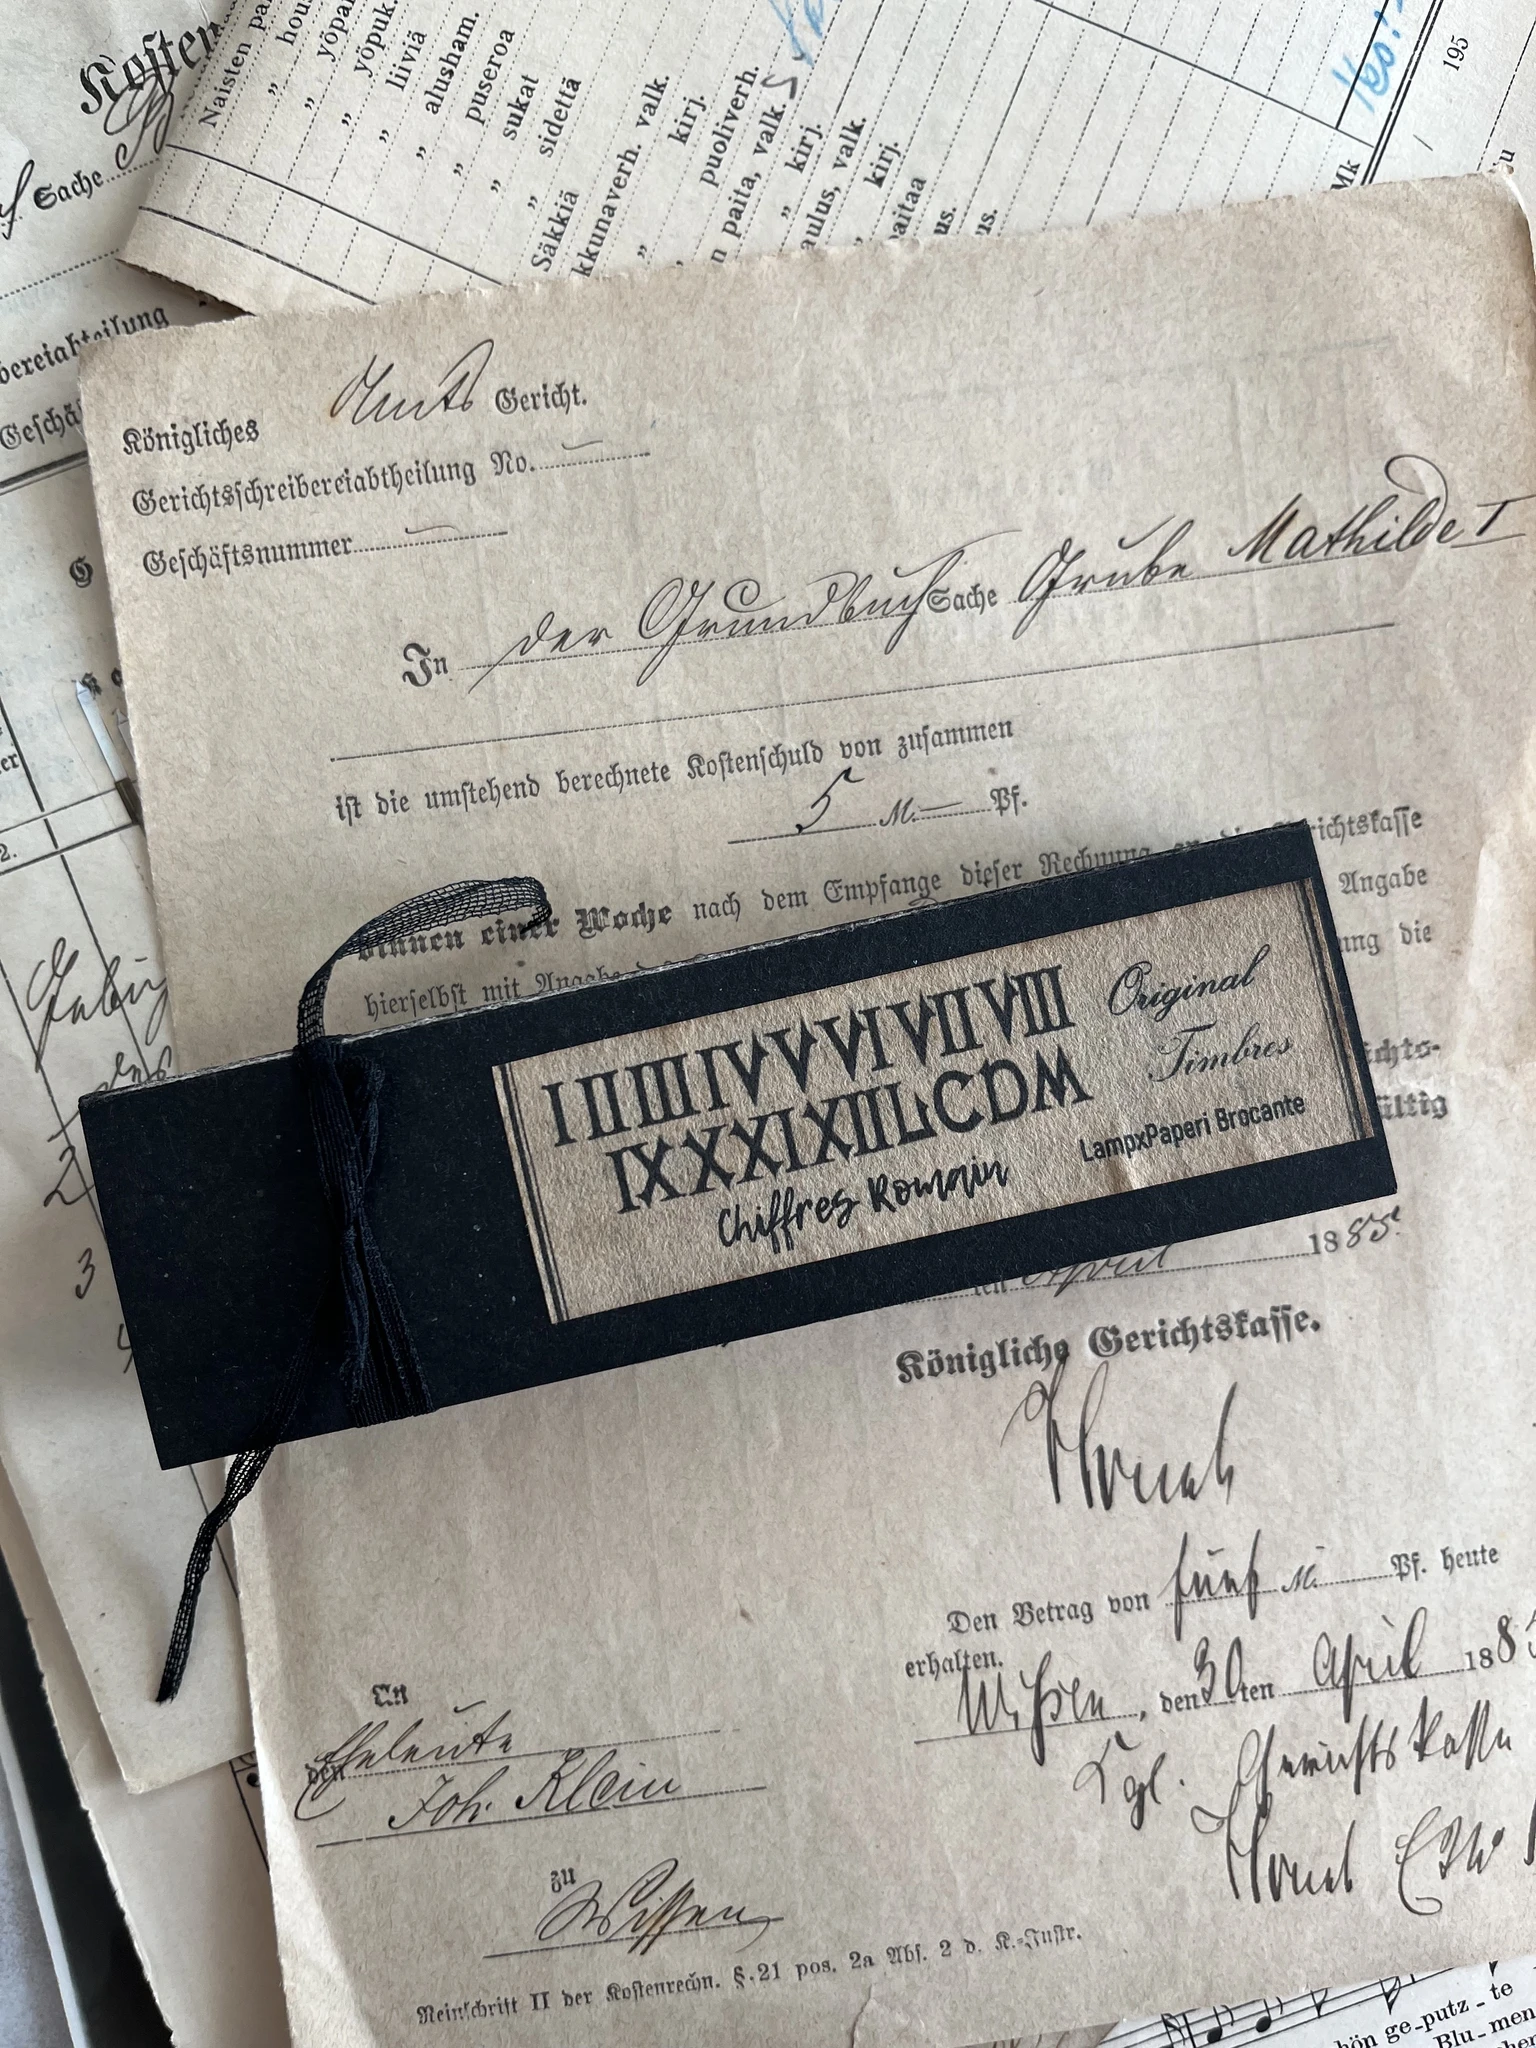 Kosten
Sache
bereiabteilung
Geschä
Naisten pa
„ hou
„ yöpa
„ yöpuk.
„ liiviä
„ alusham.
„ puseroa
„ sukat
„ sidettä
Säkkiä
kkunaverh. valk.
„ kirj.
„ puoliverh.
n paita, valk.
„ kirj.
aulus, valk.
„ kirj.
paitaa
us.
us.
Mk
195
Königliches Amts Gericht.
Gerichtsschreibereiabtheilung No.
Geschäftsnummer
In der Grundbuch Sache Grube Mathilde I
ist die umstehend berechnete Kostenschuld von zusammen
5 M. — Pf.
binnen einer Woche nach dem Empfange dieser Rechnung an die Gerichtskasse
hierselbst mit Angabe
Angabe
ung die
ichts-
ültig
I II III IV V VI VII VIII
IX X XI XII L C D M
Chiffres Romain
Original
Timbres
LampxPaperi Brocante
2
3
4
2.
ten April 1885
Königliche Gerichtskasse.
Den Betrag von fünf M. Pf. heute
erhalten.
Wissen, den 30ten April 188
Kgl. Gerichtskasse
An
den Eheleute
Joh. Klein
zu
Wissen
Reinschrift II der Kostenrechn. §. 21 pos. 2a Abs. 2 d. K.-Instr.
hön ge-putz-te
Blu-men